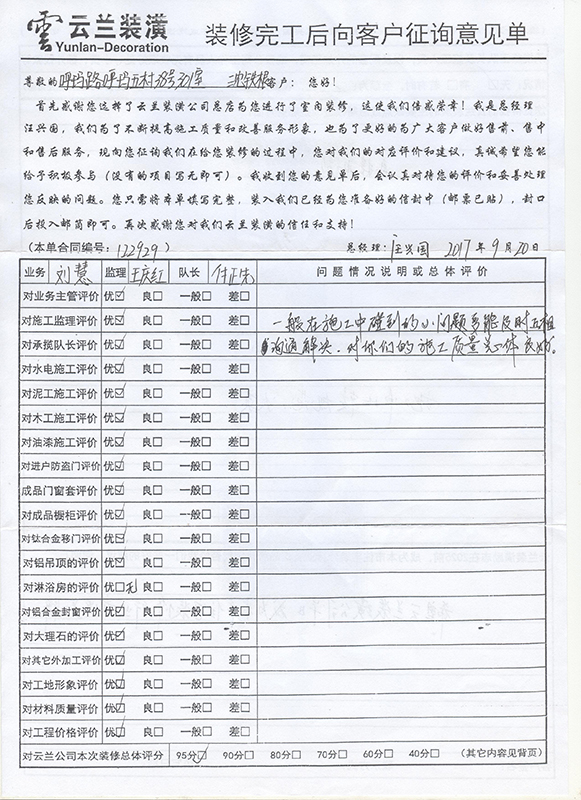 雲 云兰装潢
Yunlan-Decoration
装修完工后向客户征询意见单
尊敬的呼玛路呼玛五村38号301室 沈铁根客户：您好！
首先感谢您选择了云兰装潢公司总店为您进行了室内装修，这使我们倍感荣幸！我是总经理
汪兴国，我们为了不断提高施工质量和改善服务形象，也为了更好的为广大客户做好售前、售中
和售后服务，现向您征询我们在给您装修的过程中，您对我们的对应评价和建议，真诚希望您能
给予积极参与（没有的项目写无即可）。我收到您的意见单后，会认真对待您的评价和妥善处理
您反映的问题。您只需将本单填写完整，装入我们已经为您准备好的信封中（邮票已贴），封口
后投入邮筒即可。再次感谢您对我们云兰装潢的信任和支持！
（本单合同编号：122929） 总经理：汪兴国 2017年9月20日
业务 刘慧 监理 王庆红 队长 付正先 问题情况说明或总体评价
对业务主管评价 优☑ 良□ 一般□ 差□
对施工监理评价 优☑ 良□ 一般□ 差□ 一般在施工中碰到的小问题多能及时互相
对承揽队长评价 优☑ 良□ 一般□ 差□ 沟通解决. 对你们的施工质量总体良好。
对水电施工评价 优☑ 良□ 一般□ 差□
对泥工施工评价 优☑ 良□ 一般□ 差□
对木工施工评价 优☑ 良□ 一般□ 差□
对油漆施工评价 优☑ 良□ 一般□ 差□
对进户防盗门评价 优☑ 良□ 一般□ 差□
成品门窗套评价 优☑ 良□ 一般□ 差□
对成品橱柜评价 优☑ 良□ 一般□ 差□
对钛合金移门评价 优☑ 良□ 一般□ 差□
对铝吊顶的评价 优☑ 良□ 一般□ 差□
对淋浴房的评价 优□无 良□ 一般□ 差□
对铝合金封窗评价 优☑ 良□ 一般□ 差□
对大理石的评价 优☑ 良□ 一般□ 差□
对其它外加工评价 优☑ 良□ 一般□ 差□
对工地形象评价 优☑ 良□ 一般□ 差□
对材料质量评价 优☑ 良□ 一般□ 差□
对工程价格评价 优☑ 良□ 一般□ 差□
对云兰公司本次装修总体评分 95分☑ 90分□ 80分□ 70分□ 60分□ 40分□ （其它内容见背页）